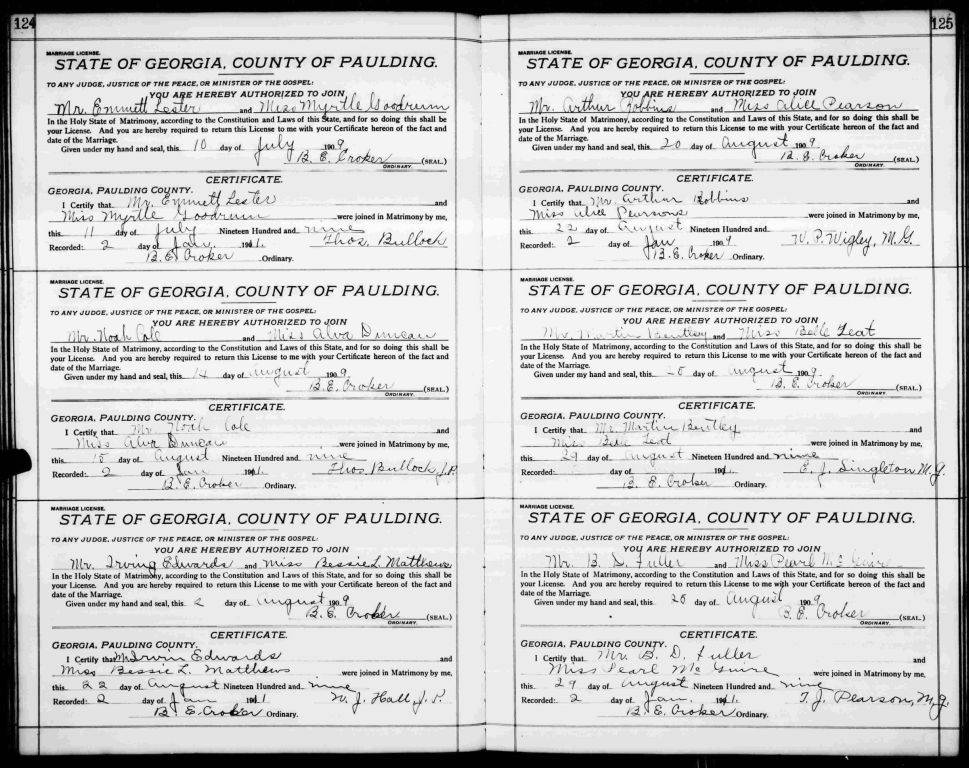 124
MARRIAGE LICENSE.
STATE OF GEORGIA, COUNTY OF PAULDING.
TO ANY JUDGE, JUSTICE OF THE PEACE, OR MINISTER OF THE GOSPEL:
YOU ARE HEREBY AUTHORIZED TO JOIN
Mr. Emmett Lester and Miss Myrtle Goodrum
In the Holy State of Matrimony, according to the Constitution and Laws of this State, and for so doing this shall be
your License. And you are hereby required to return this License to me with your Certificate hereon of the fact and
date of the Marriage.
Given under my hand and seal, this 10 day of July 1909
B. E. Croker (SEAL.)
ORDINARY.
CERTIFICATE.
GEORGIA, PAULDING COUNTY.
I Certify that Mr. Emmett Lester and
Miss Myrtle Goodrum were joined in Matrimony by me,
this 11 day of July Nineteen Hundred and nine
Recorded: 2 day of Jan. 1911. Thos. Bullock
B. E. Croker Ordinary.
MARRIAGE LICENSE.
STATE OF GEORGIA, COUNTY OF PAULDING.
TO ANY JUDGE, JUSTICE OF THE PEACE, OR MINISTER OF THE GOSPEL:
YOU ARE HEREBY AUTHORIZED TO JOIN
Mr. Noah Cole and Miss Alva Duncan
In the Holy State of Matrimony, according to the Constitution and Laws of this State, and for so doing this shall be
your License. And you are hereby required to return this License to me with your Certificate hereon of the fact and
date of the Marriage.
Given under my hand and seal, this 14 day of August 1909.
B. E. Croker (SEAL.)
ORDINARY.
CERTIFICATE.
GEORGIA, PAULDING COUNTY.
I Certify that Mr. Noah Cole and
Miss Alva Duncan were joined in Matrimony by me,
this 15 day of August Nineteen Hundred and nine
Recorded: 2 day of Jan 1911. Thos. Bullock J.P.
B. E. Croker Ordinary.
MARRIAGE LICENSE.
STATE OF GEORGIA, COUNTY OF PAULDING.
TO ANY JUDGE, JUSTICE OF THE PEACE, OR MINISTER OF THE GOSPEL:
YOU ARE HEREBY AUTHORIZED TO JOIN
Mr. Irving Edwards and Miss Bessie L. Matthews
In the Holy State of Matrimony, according to the Constitution and Laws of this State, and for so doing this shall be
your License. And you are hereby required to return this License to me with your Certificate hereon of the fact and
date of the Marriage.
Given under my hand and seal, this 2 day of August 1909
B. E. Croker (SEAL.)
ORDINARY.
CERTIFICATE.
GEORGIA, PAULDING COUNTY.
I Certify that Mr Irwin Edwards and
Miss Bessie L. Matthews were joined in Matrimony by me,
this 22 day of August Nineteen Hundred and nine
Recorded: 2 day of Jan 1911 W. J. Hall, J. P.
B. E. Croker Ordinary.
125
MARRIAGE LICENSE.
STATE OF GEORGIA, COUNTY OF PAULDING.
TO ANY JUDGE, JUSTICE OF THE PEACE, OR MINISTER OF THE GOSPEL:
YOU ARE HEREBY AUTHORIZED TO JOIN
Mr. Arthur Robbins and Miss Alice Pearson
In the Holy State of Matrimony, according to the Constitution and Laws of this State, and for so doing this shall be
your License. And you are hereby required to return this License to me with your Certificate hereon of the fact and
date of the Marriage.
Given under my hand and seal, this 20 day of August 1909
B. E. Croker (SEAL.)
ORDINARY.
CERTIFICATE.
GEORGIA, PAULDING COUNTY.
I Certify that Mr. Arthur Robbins and
Miss Alice Pearsons were joined in Matrimony by me,
this 22 day of August Nineteen Hundred and
Recorded: 2 day of Jan 1909 W. P. Wigley, M. G.
B. E. Croker Ordinary.
MARRIAGE LICENSE.
STATE OF GEORGIA, COUNTY OF PAULDING.
TO ANY JUDGE, JUSTICE OF THE PEACE, OR MINISTER OF THE GOSPEL:
YOU ARE HEREBY AUTHORIZED TO JOIN
Mr. Martin Bentley and Miss Belle
In the Holy State of Matrimony, according to the Constitution and Laws of this State, and for so doing this shall be
your License. And you are hereby required to return this License to me with your Certificate hereon of the fact and
date of the Marriage.
Given under my hand and seal, this day of August 1909
B. E. Croker (SEAL.)
ORDINARY.
CERTIFICATE.
GEORGIA, PAULDING COUNTY.
I Certify that Mr. Martin Bentley and
Miss were joined in Matrimony by me,
this 29 day of August Nineteen Hundred and nine
Recorded: 2 day of Jan 1911. E. J. Singleton M. G.
B. E. Croker Ordinary.
MARRIAGE LICENSE.
STATE OF GEORGIA, COUNTY OF PAULDING.
TO ANY JUDGE, JUSTICE OF THE PEACE, OR MINISTER OF THE GOSPEL:
YOU ARE HEREBY AUTHORIZED TO JOIN
Mr. B. D. Fuller and Miss Pearl McGuire
In the Holy State of Matrimony, according to the Constitution and Laws of this State, and for so doing this shall be
your License. And you are hereby required to return this License to me with your Certificate hereon of the fact and
date of the Marriage.
Given under my hand and seal, this 28 day of August 1909
B. E. Croker (SEAL.)
ORDINARY.
CERTIFICATE.
GEORGIA, PAULDING COUNTY.
I Certify that Mr. B. D. Fuller and
Miss Pearl McGuire were joined in Matrimony by me,
this 29 day of August Nineteen Hundred and nine
Recorded: 2 day of Jan. 1911. T. J. Pearson, M. G.
B. E. Croker Ordinary.